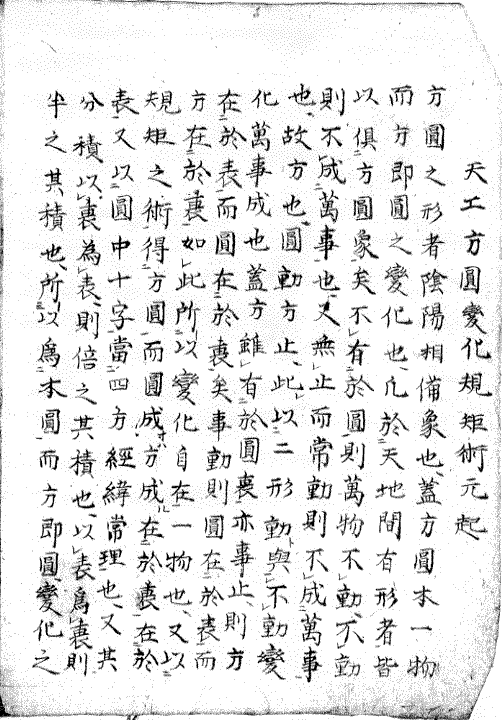 天工方圓變化規矩術元起
方圓之形者陰陽相備象也蓋方圓本一物
而方即圓之變化也凡於天地間有形者皆
以俱方圓象矣不有於圓則萬物不動不動
則不成萬事也又無止而常動則不成萬事
也故方也圓動方止此以二形動與不動變
化萬事成也蓋方雖有於圓裏亦事止則方
在於表而圓在於裏矣事動則圓在於表而
方在於裏如此所以變化自在一物也又以
規矩之術得方圓而圓成方成在於裏在於
表又以圓中十字當四方經緯常理也又其
分積以裏為表則倍之其積也以表爲裏則
半之其積也所以爲本圓而方即圓變化之